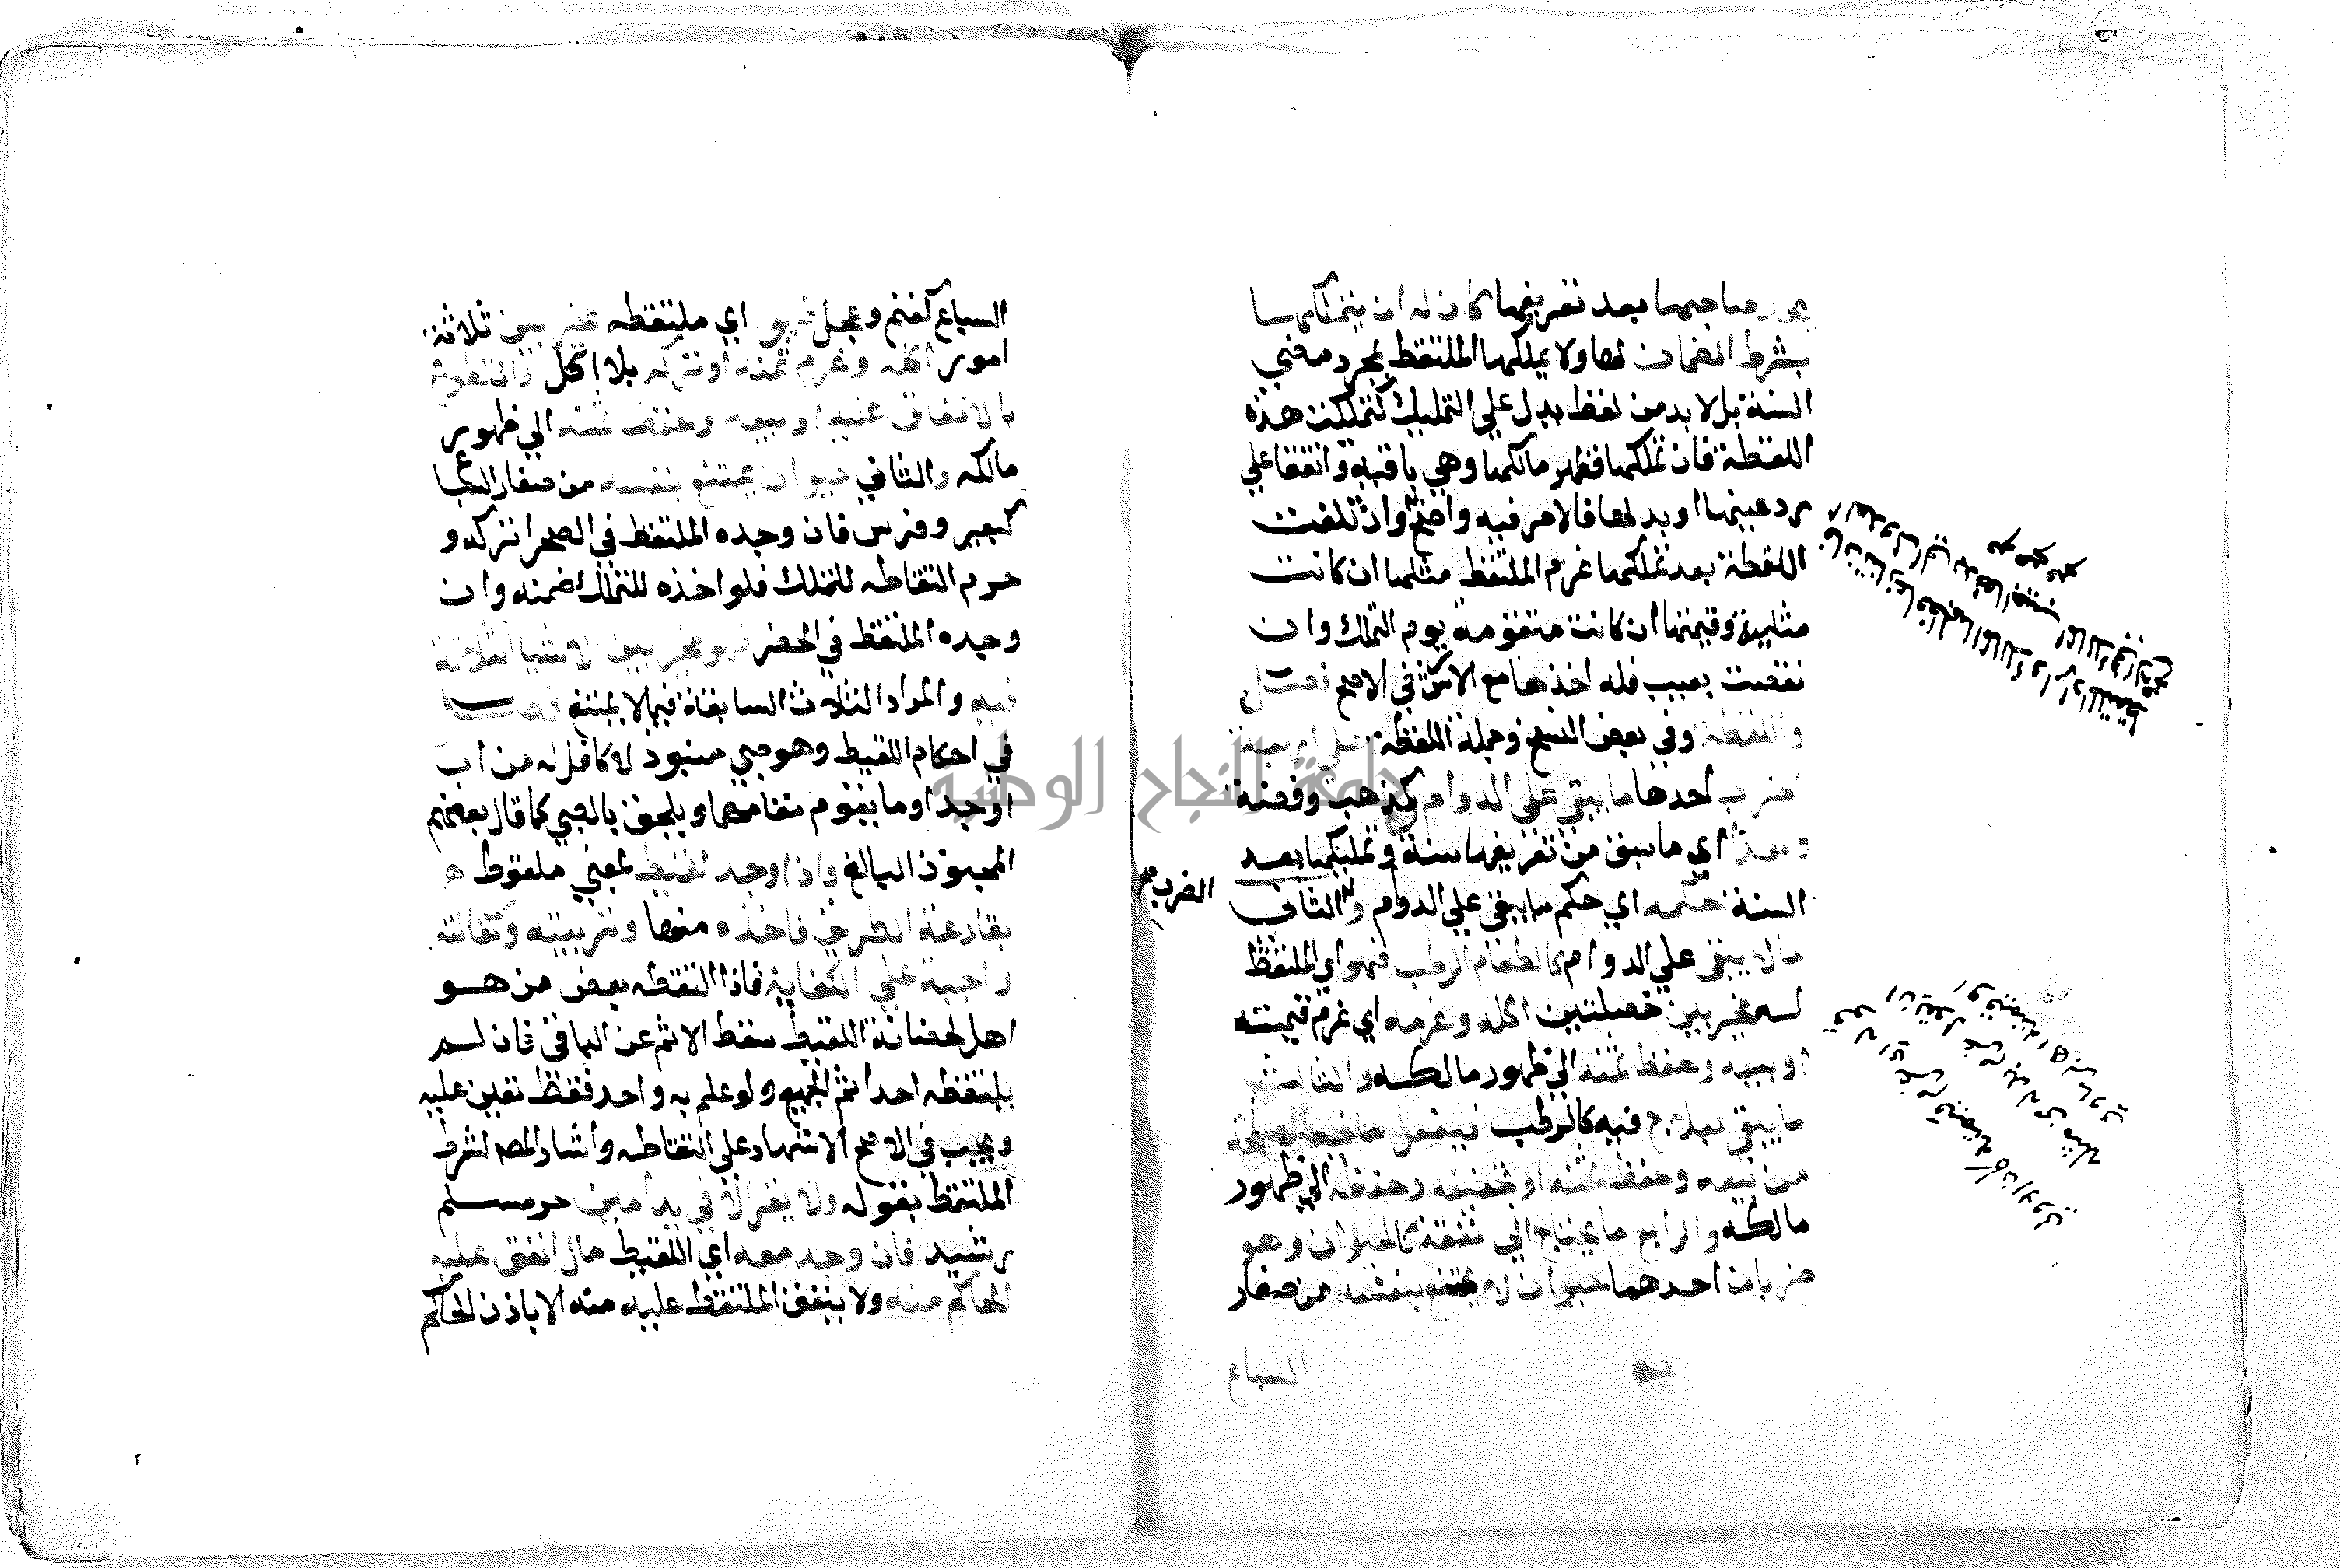 صاحبها بعد تعريفها كان له ان يتملكها
بشرط الضمان لها ولا يملكها الملتقط بمجرد مضي
السنة بل لا بد من لفظ يدل علي التمليك كتملكت هذه
اللقطة فان تملكها فظهر مالكها وهي باقية واتفقا علي
رد عينها او بدلها فالامر فيه واضح وان تلفت
اللقطة بعد تملكها غرم الملتقط مثلها ان كانت
مثلية وقيمتها ان كانت متقومة يوم التملك وان
نقصت بعيب فله اخذها مع الارش في الاصح فصل
واللقطة وفي بعض النسخ وجملة اللقطة علي اربعة
اضرب احدها ما يبقي علي الدوام كذهب وفضة
فهذا اي ما سبق من تعريفها سنة وتمليكها بعد
السنة حكمه اي حكم ما يبقي علي الدوام والثاني
الضرب صح
ما لا يبقي علي الدوام كالطعام الرطب فهو اي الملتقط
له مخير بين خصلتين اكله وغرمه اي غرم قيمته
او بيعه وحفظ ثمنه الي ظهور مالكه والثالث
ما يبقي بعلاج فيه كالرطب فيفعل ما فيه المصلحة
من بيعه وحفظ ثمنه او تجفيفه وحفظه الي ظهور
مالكه والرابع ما يحتاج الي نفقة كالحيوان وهو
ضربان احدهما حيوان لا يمتنع بنفسه من صغار
السباع
السباع كغنم وعجل فهو اي ملتقطه مخير بين ثلاثة
امور اكله وغرم ثمنه او تركه بلا اكل والتطوع
بالانفاق عليه او بيعه وحفظ ثمنه الي ظهور
مالكه والثاني حيوان يمتنع بنفسه من صغار السباع
كبعير وفرس فان وجده الملتقط في الصحرا تركه و
حرم التقاطه للتملك فلو اخذه للتملك ضمنه وان
وجده الملتقط في الحضر فهو مخير بين الاشيا الثلاثة
فيه والمراد الثلاث السابقة فيما لا يمتنع فصل
في احكام اللقيط وهو صبي منبوذ لا كافل له من اب
او جد او ما يقوم مقامهما ويلحق بالصبي كما قال بعضهم
المجنون البالغ واذا وجد لقيط بمعني ملقوط
بقارعة الطريق فاخذه منها وتربيته وكفالته
واجبة علي الكفاية فاذا التقطه بعض من هو
اهل لحضانة اللقيط سقط الاثم عن الباقي فان لم
يلتقطه احد اثم الجميع ولو علم به واحد فقط تعين عليه
ويجب في الاصح الاشهاد علي التقاطه واشار المص لشرط
الملتقط بقوله ولا يقر الا في يد امين حر مسلم
رشيد فان وجد معه اي اللقيط مال انفق عليه
الحاكم منه ولا ينفق الملتقط عليه منه الا باذن الحاكم
جامعة النجاح الوطنية